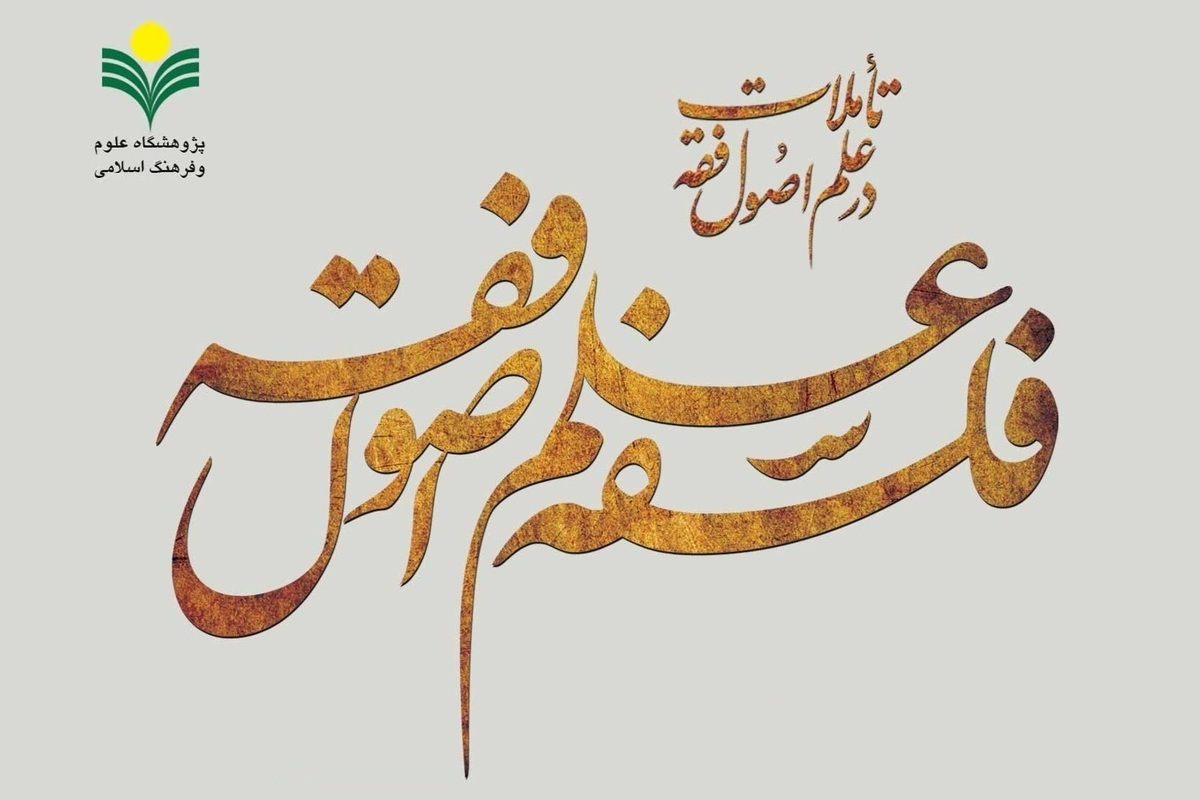 پژوهشگاه علوم
وفرهنگ اسلامی
تأملات
در علم اصُول فقه
فلسفه علم اصول فقه